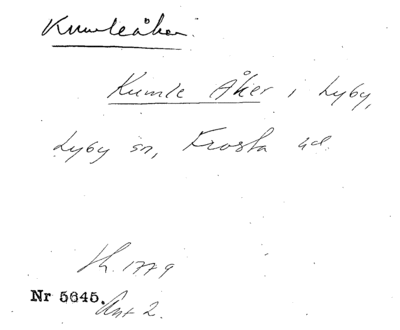 Kumleåker.
Kumle Åker i Lyby,
Lyby sn, Frosta hd.
Sk. 1779
Nr 5645.
Ant 2.